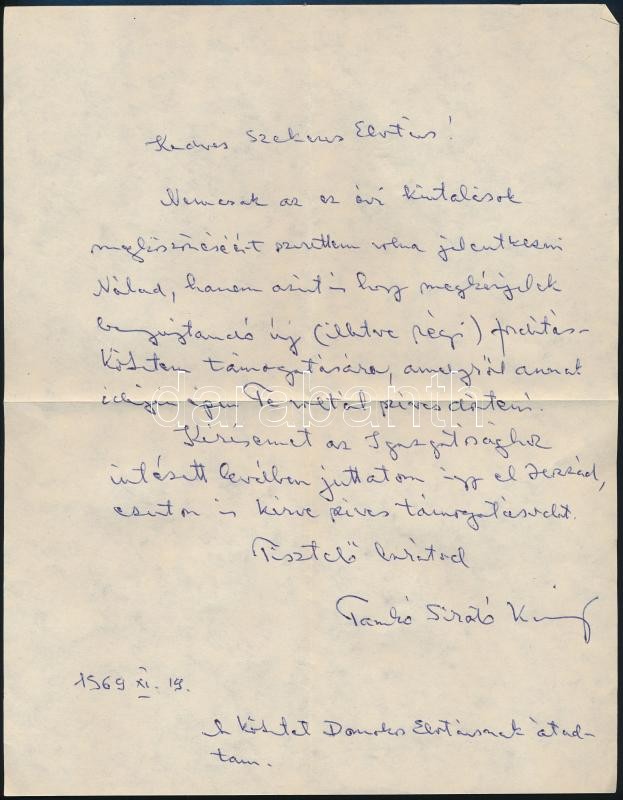 Kedves Szekeres Elvtárs!
Nemcsak az ez évi kiutalások
megköszönéséért szerettem volna jelentkezni
Nálad, hanem azért is hogy megkérjelek
benyujtandó új (illetve régi) fordítás-
kötetem támogatására, amelyről annak
idején épen Te voltál szíves dönteni.
Kérésemet az Igazgatósághoz
intézett levélben juttatom így el Hozzád,
ezuton is kérve szíves támogatásodat.
Tisztelő barátod
Tamkó Sirató Károly
1969 XI. 19.
A kötetet Domokos Elvtársnak átad-
tam.
darabanth